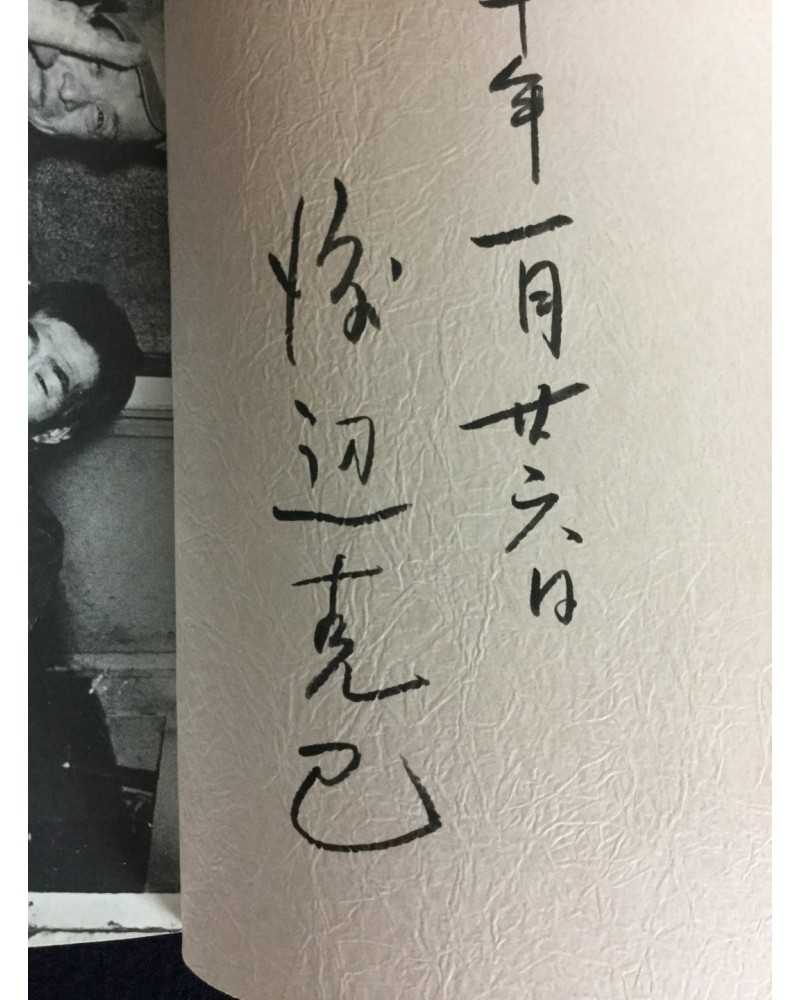 十年一月廿六日
渡辺克巳